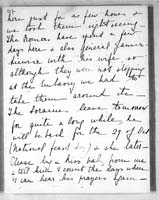 here just for a few hours &
we took them sightseeing
The Romans have spent a few
days here & also General James
with his wife so
although they were not stopping
at the Embassy we had to
take them around etc —
The Soranas leave tomorrow
for quite a long while, he
will be back for the 29 of Oct
(National feast day) & she later —
bless his holy poem we
& still I count the days when
I can hear his prayers again —